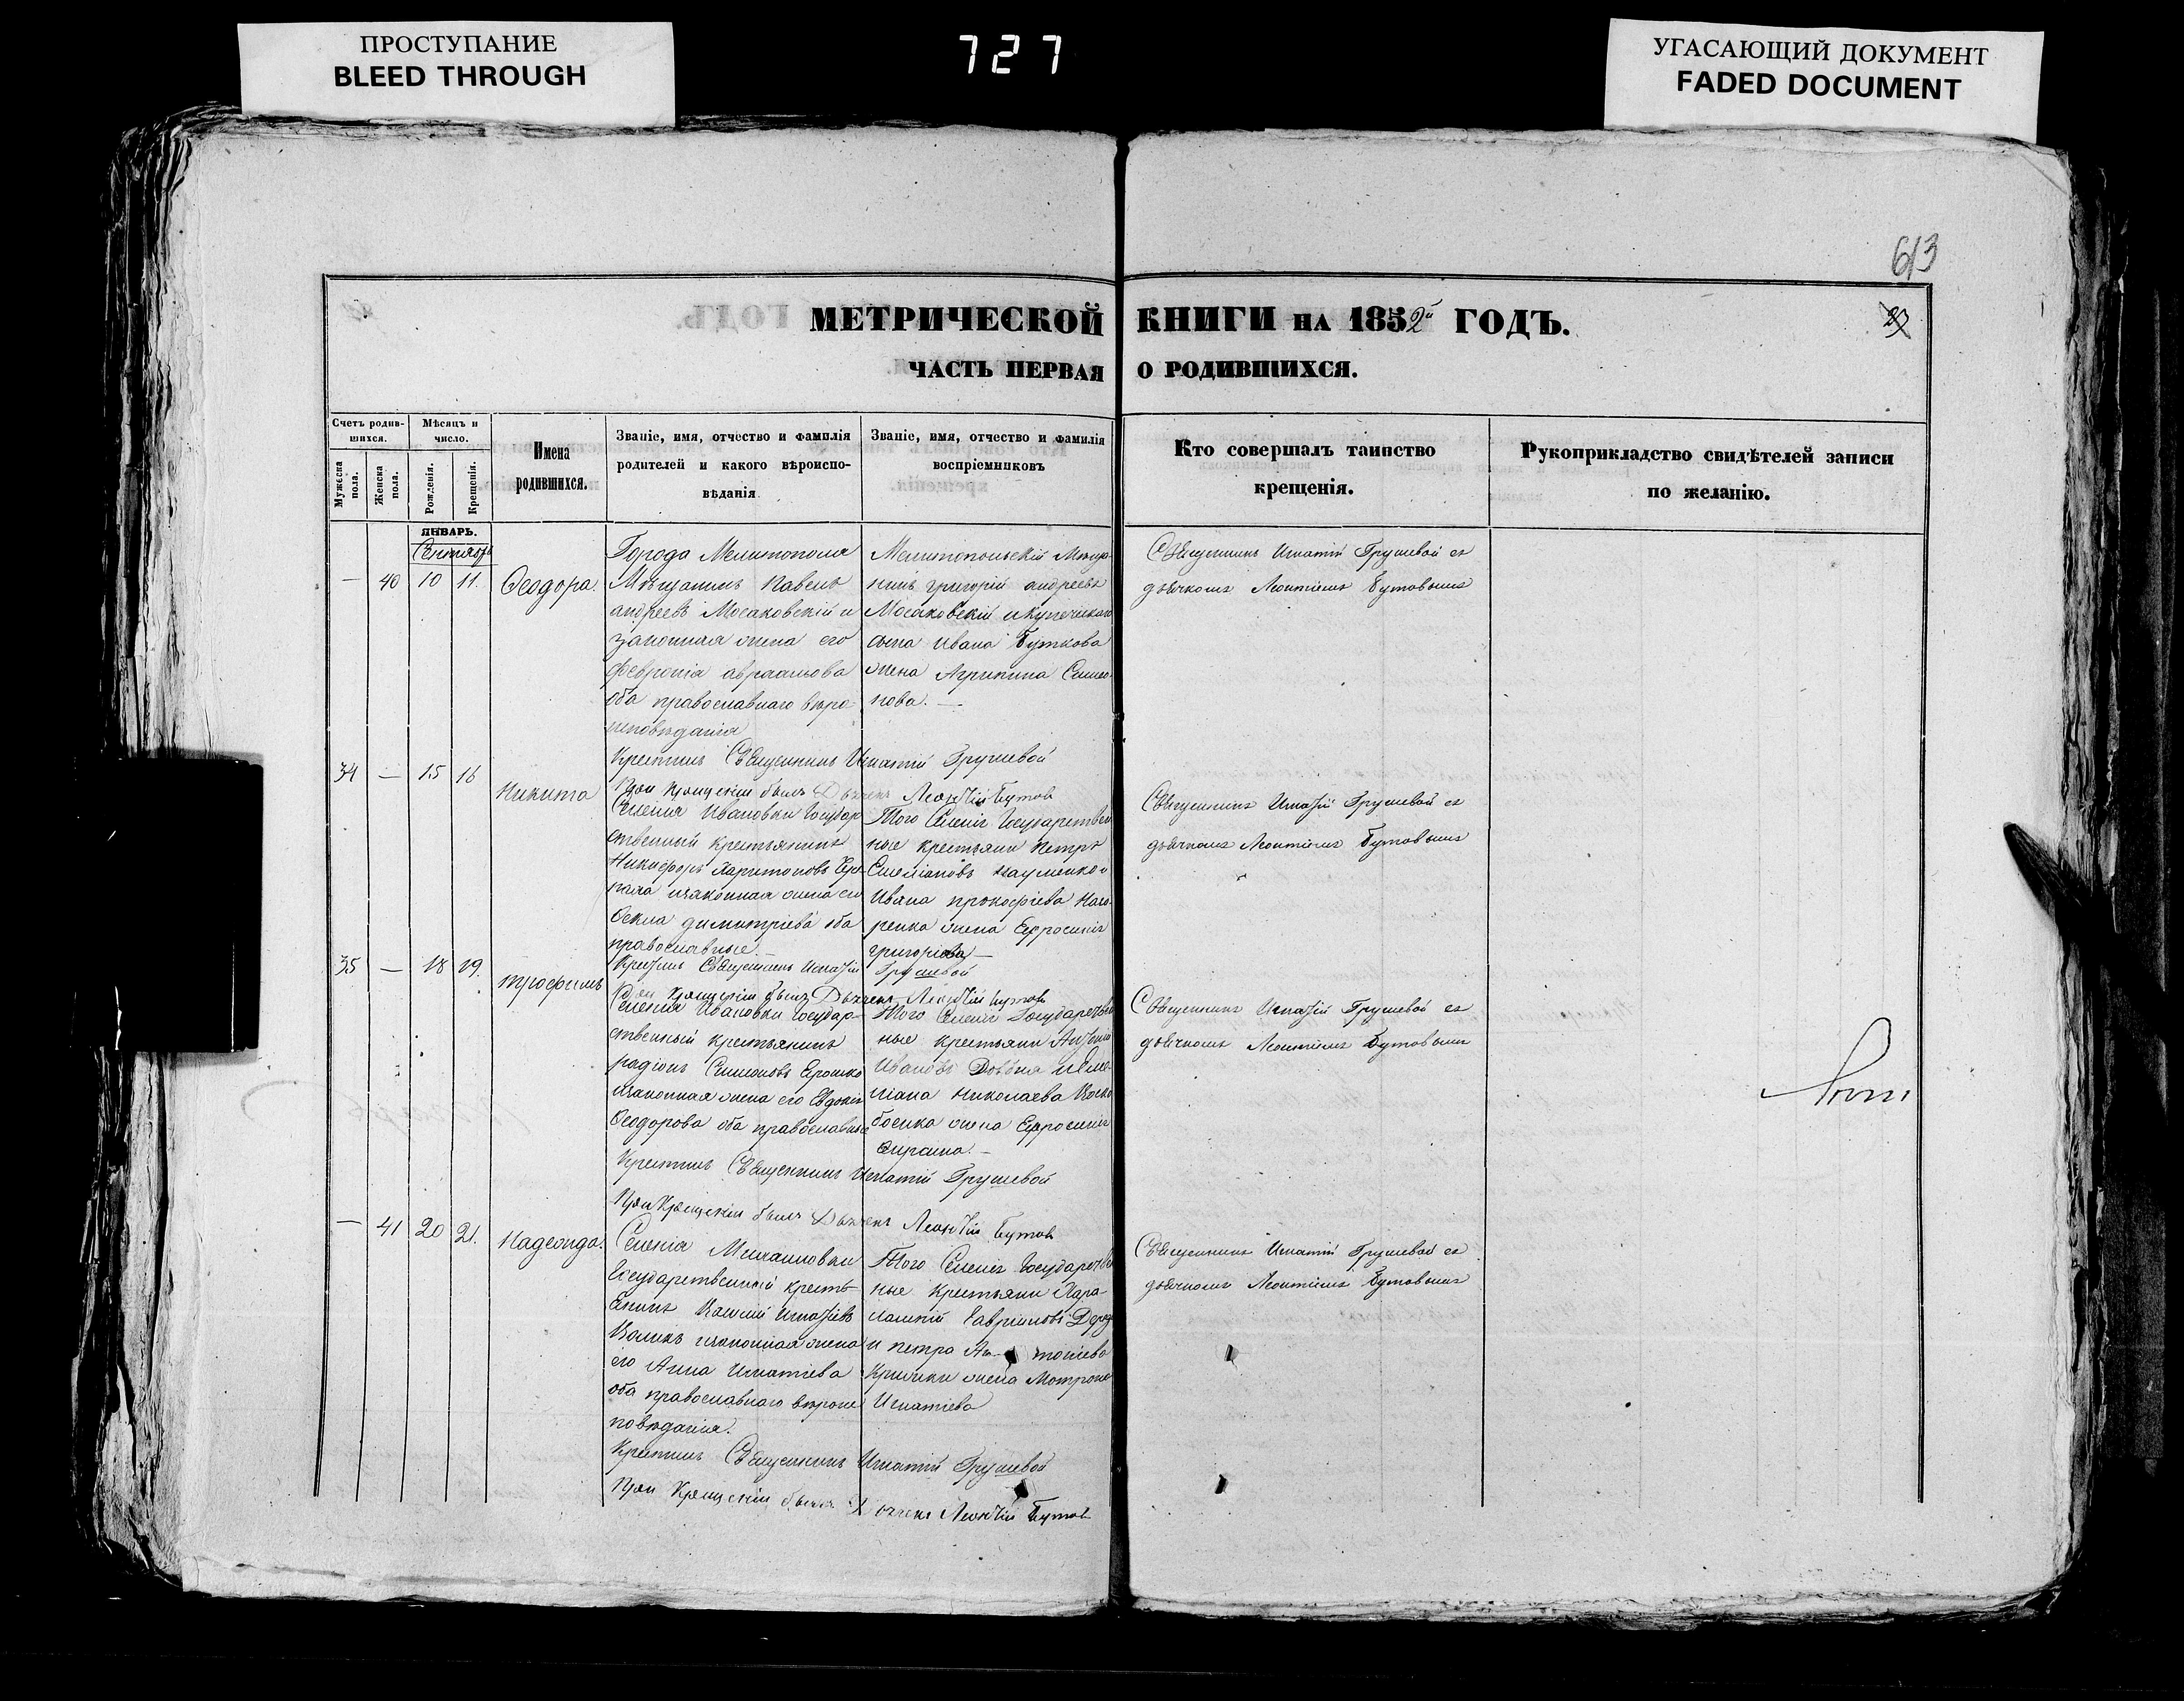 ПРОСТУПАНИЕ
BLEED THROUGH
727
УГАСАЮЩИЙ ДОКУМЕНТ
FADED DOCUMENT
613
МЕТРИЧЕСКОЙ КНИГИ НА 1852й ГОДЪ.
23
ЧАСТЬ ПЕРВАЯ О РОДИВШИХСЯ.
Счетъ родив-
шихся.
Мужеска пола.
Женска пола.
Мѣсяцъ и
число.
Рожденія.
Крещенія.
Имена
родившихся.
Званіе, имя, отчество и фамилія
родителей и какого вѣроиспо-
вѣданія
Званіе, имя, отчество и фамилія
воспріемниковъ
Кто совершалъ таинство
крещенія.
Рукоприкладство свидѣтелей записи
по желанію.
ЯНВАРЬ.
Сентябрь
— 40 10 11. Ѳеодора.
Города Мелитополя
Мѣщанинъ Павелъ
андреевъ Мосаковскій и
законная жена его
Февронія авраамова
оба православнаго вѣро
исповѣданія
Мелитопольскій Мѣща-
нинъ григорій андреевъ
Мосаковскій и купеческаго
сына Ивана Буткова
жена Агрипина Симео-
нова. —
Священникъ Игнатій Грушевой съ
дьячкомъ Леонтіемъ Бутовымъ
Крестилъ Священникъ Игнатій Грушевой
При Крещеніи былъ Дьячекъ Леонтій Бутов
34 — 15 16 Никита
Селенія Ивановки Государ
ственный крестьянинъ
Никифоръ Харитоновъ
изаконная жена его
димитріева оба
православные
Того Селенія Государствен
ные крестьяни Петръ
Емеліановъ Науменко и
Ивана прокофіева Наго-
ренка жена Ефросинія
григоріева —
Священникъ Игнатій Грушевой съ
дьячкомъ Леонтіемъ Бутовымъ
Крестилъ Священникъ Игнатій Грушевой
При Крещеніи былъ Дьячекъ Леонтій Бутов
35 — 18 19. Трофимъ
Селенія Ивановки Государ-
ственный крестьянинъ
радіонъ Симоновъ Ерошко
изаконная жена его Евдокія
Ѳеодорова оба православные
Того Селенія Государствен
ные крестьяни
Ивановъ Довбня и Еме-
ліана Николаева
жена Ефросинія
Священникъ Игнатій Грушевой съ
дьячкомъ Леонтіемъ Бутовымъ
Крестилъ Священникъ Игнатій Грушевой
При Крещеніи былъ Дьячекъ Леонтій Бутов
— 41 20 21. Надежда.
Селенія Михаиловки
Государственный кресть-
янинъ Игнатіевъ
изаконная жена
его Анна Игнатіева
оба православнаго вѣроис
повѣданія.
Того Селенія Государствен
ные крестьяни Хара-
лампій Гавриловъ
и петра
жена Мотрона
Игнатіева
Священникъ Игнатій Грушевой съ
дьячкомъ Леонтіемъ Бутовымъ
Крестилъ Священникъ Игнатій Грушевой
При Крещеніи былъ Дьячекъ Леонтій Бутов